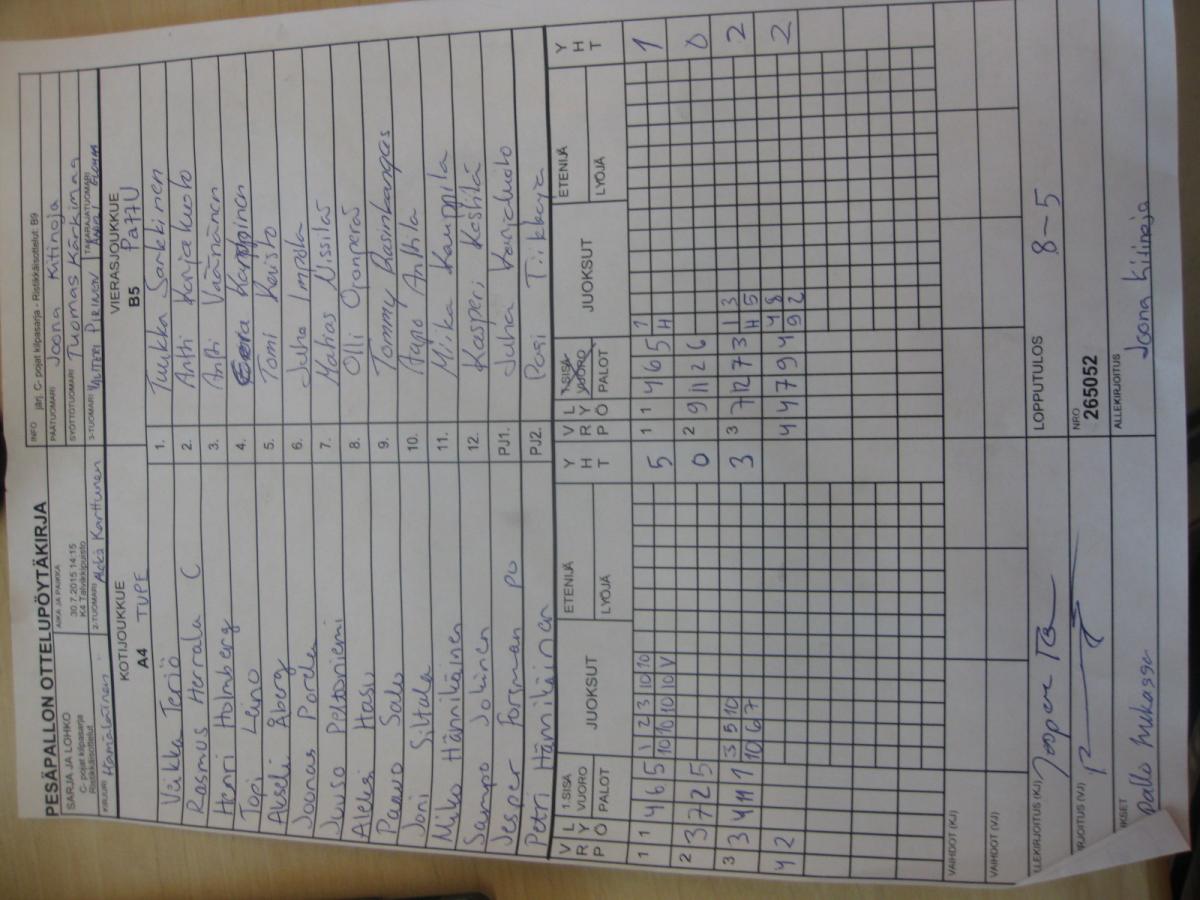 PESÄPALLON OTTELUPÖYTÄKIRJA
INFO järj. C- pojat kilpasarja - Ristikkäisottelut: B9
SARJA JA LOHKO
C- pojat kilpasarja
Ristikkäisottelut
AIKA JA PAIKKA
30.7.2015 14:15
K4 Talvikkipuisto
PÄÄTUOMARI Joona Kitinoja
SYÖTTÖTUOMARI Tuomas Kärkimaa
KIRJURI Hämäläinen
2-TUOMARI Karttunen
3-TUOMARI Pirinen
TAKARAJATUOMARI
KOTIJOUKKUE
A4 TUPE
VIERASJOUKKUE
B5 PattU
Rasmus Herrala C
Henri Holmberg
Topi Leino
Akseli Åberg
Joonas
Juuso Peltoniemi
Aleksi Hasu
Paavo Salo
Joni Siltala
Miko Hännikäinen
Sampo Jokinen
Jesper Forsman PO
Petri Hännikäinen
1. Tuukka Sarkkinen
2. Antti Karjaluoto
3. Antti Väänänen
4. Eera Karppinen
5. Tomi Kevisto
6. Juho Impola
7. Matias Nissilä
8. Olli
9. Tommy Rasinkangas
10. Aapo Anttila
11. Miika Kamppila
12. Kasperi Keskilä
PJ1. Juha Karjaluoto
PJ2. Pasi Tiikkaja
VRP LYÖ 1.SISÄ VUORO PALOT JUOKSUT ETENIJÄ LYÖJÄ YHT
1 1 4 6 5 1 2 3 10 10 5
10 10 10 10 V
2 3 7 2 5 0
3 3 4 11 1 3 5 10 3
10 6 7
4 2
VRP LYÖ 1.SISÄ VUORO PALOT JUOKSUT ETENIJÄ LYÖJÄ YHT
1 1 4 6 5 1 1
H
2 9 11 2 6 0
3 7 12 7 3 1 3 2
H 5
4 4 7 9 4 4 8 2
9 2
VAIHDOT (KJ)
VAIHDOT (VJ)
LLEKIRJOITUS (KJ)
LOPPUTULOS 8-5
RJOITUS (VJ)
NRO
265052
KSET
pallo hukassa
ALLEKIRJOITUS
Joona Kitinoja